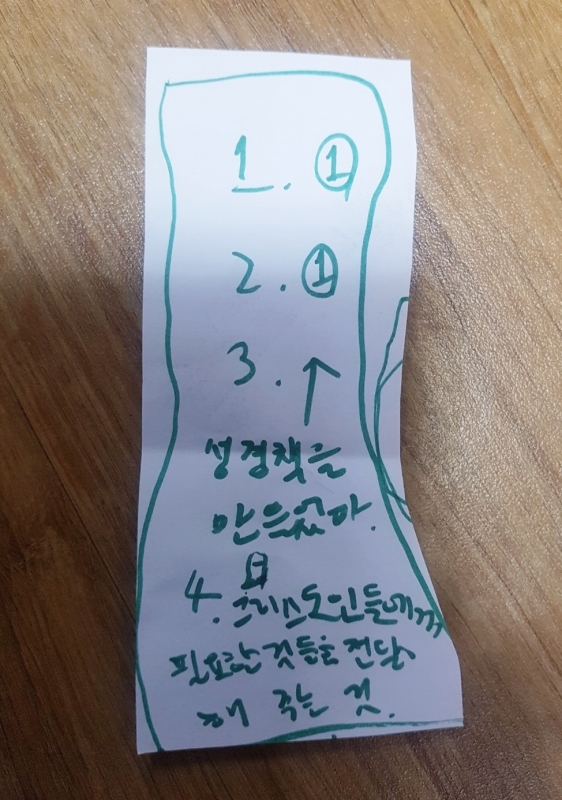 1. ①
2. ①
3. ↑
성경책을
만드셨다.
4. 크리스도인들에게
필요한 것들을 전달
해 주는 것.